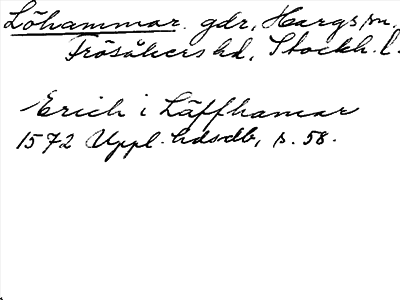 Löhammar. gdr, Hargs sn.
Frösåkers hd, Stockh. l.
Erich i Läffhamar
1572 Uppl. hdsdb, s. 58.